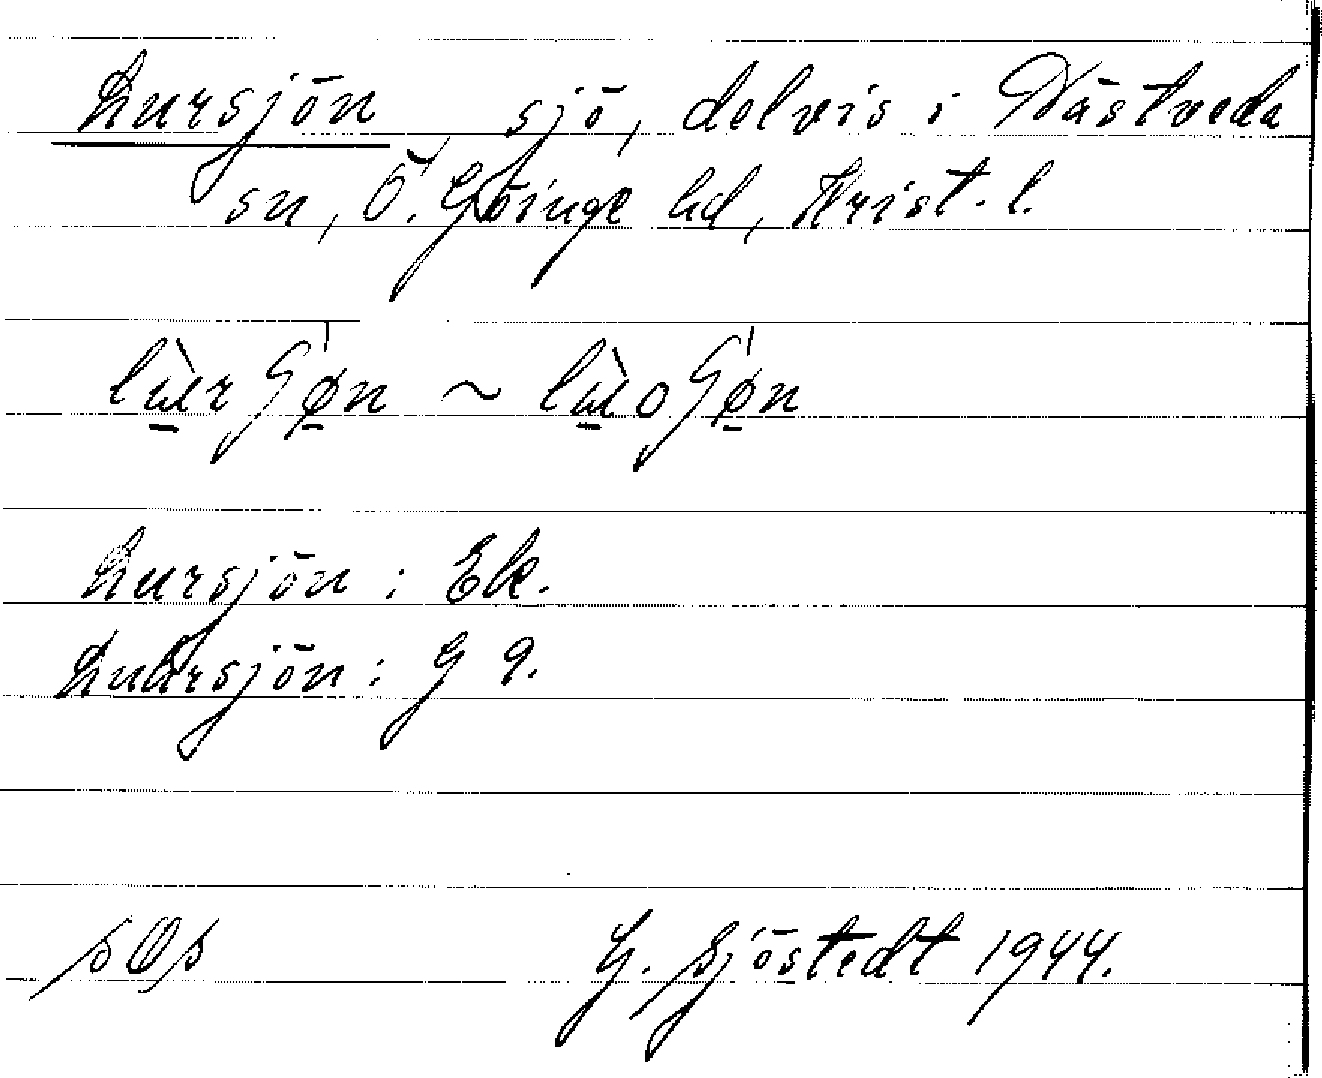 Lursjön, sjö, delvis i Västveda
sn, Ö. Göinge hd, Krist. l.
Lursjön : Ek.
Luursjön : G 9.
G. Sjöstedt 1944.